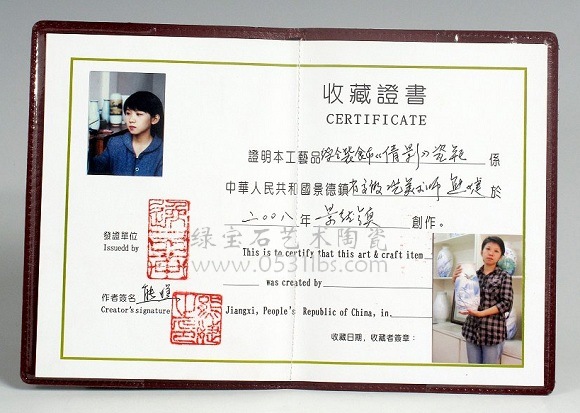 收藏證書
CERTIFICATE
證明本工藝品综合装飾《倩影》瓷瓶係
中華人民共和國景德鎮
二〇〇八年景德镇創作。
發證單位
Issuedd by
绿宝石艺术陶瓷
www.0531lbs.com
This is to certify that this art & craft item
was created by
作者簽名
Creator's signature
Jiangxi, People's Republic of China, in
收藏日期，收藏者簽章：